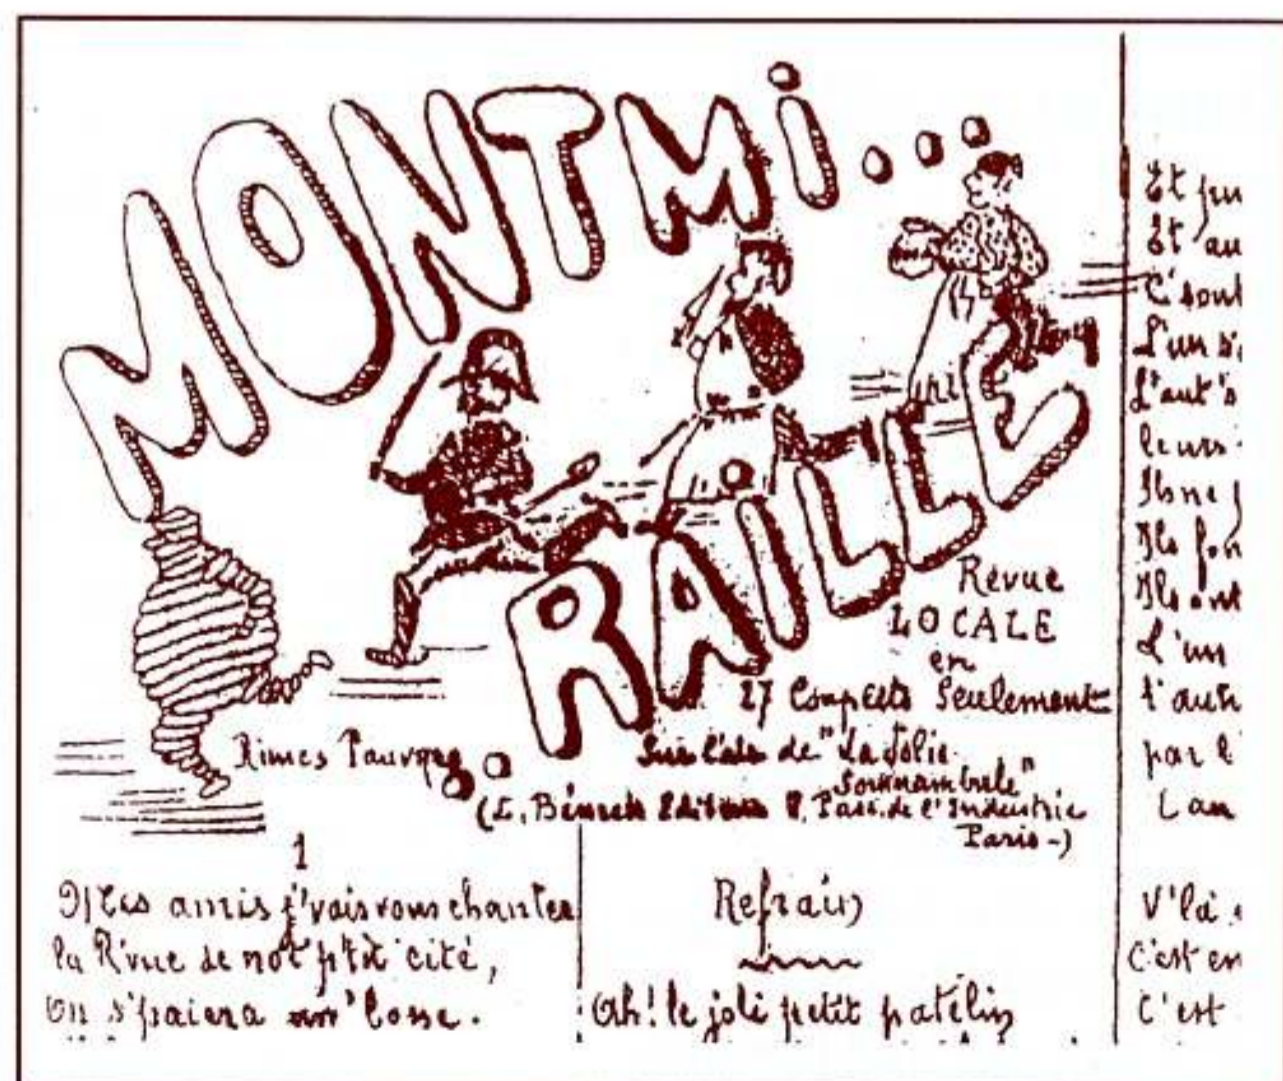 MONTMI...
RAILLE
Revue
LOCALE
en
27 Couplets Seulement
Rimes Pauvres
Sur l'air de "La Jolie
Somnambule"
(L. Bénech Editeur Pass. de l'Industrie
Paris-)
1
Mes amis j'vais vous chanter
la R'vue de not' p'tit' cité,
On s'paiera un' bosse.
Refrain
Ah! le joli petit patelin
Et pu
Et au
C'sont
L'un s'
L'aut's
leurs
Ils ne
Ils fon
Ils ont
L'un
l'autr
par l'
L'au
V'la
C'est en
C'est